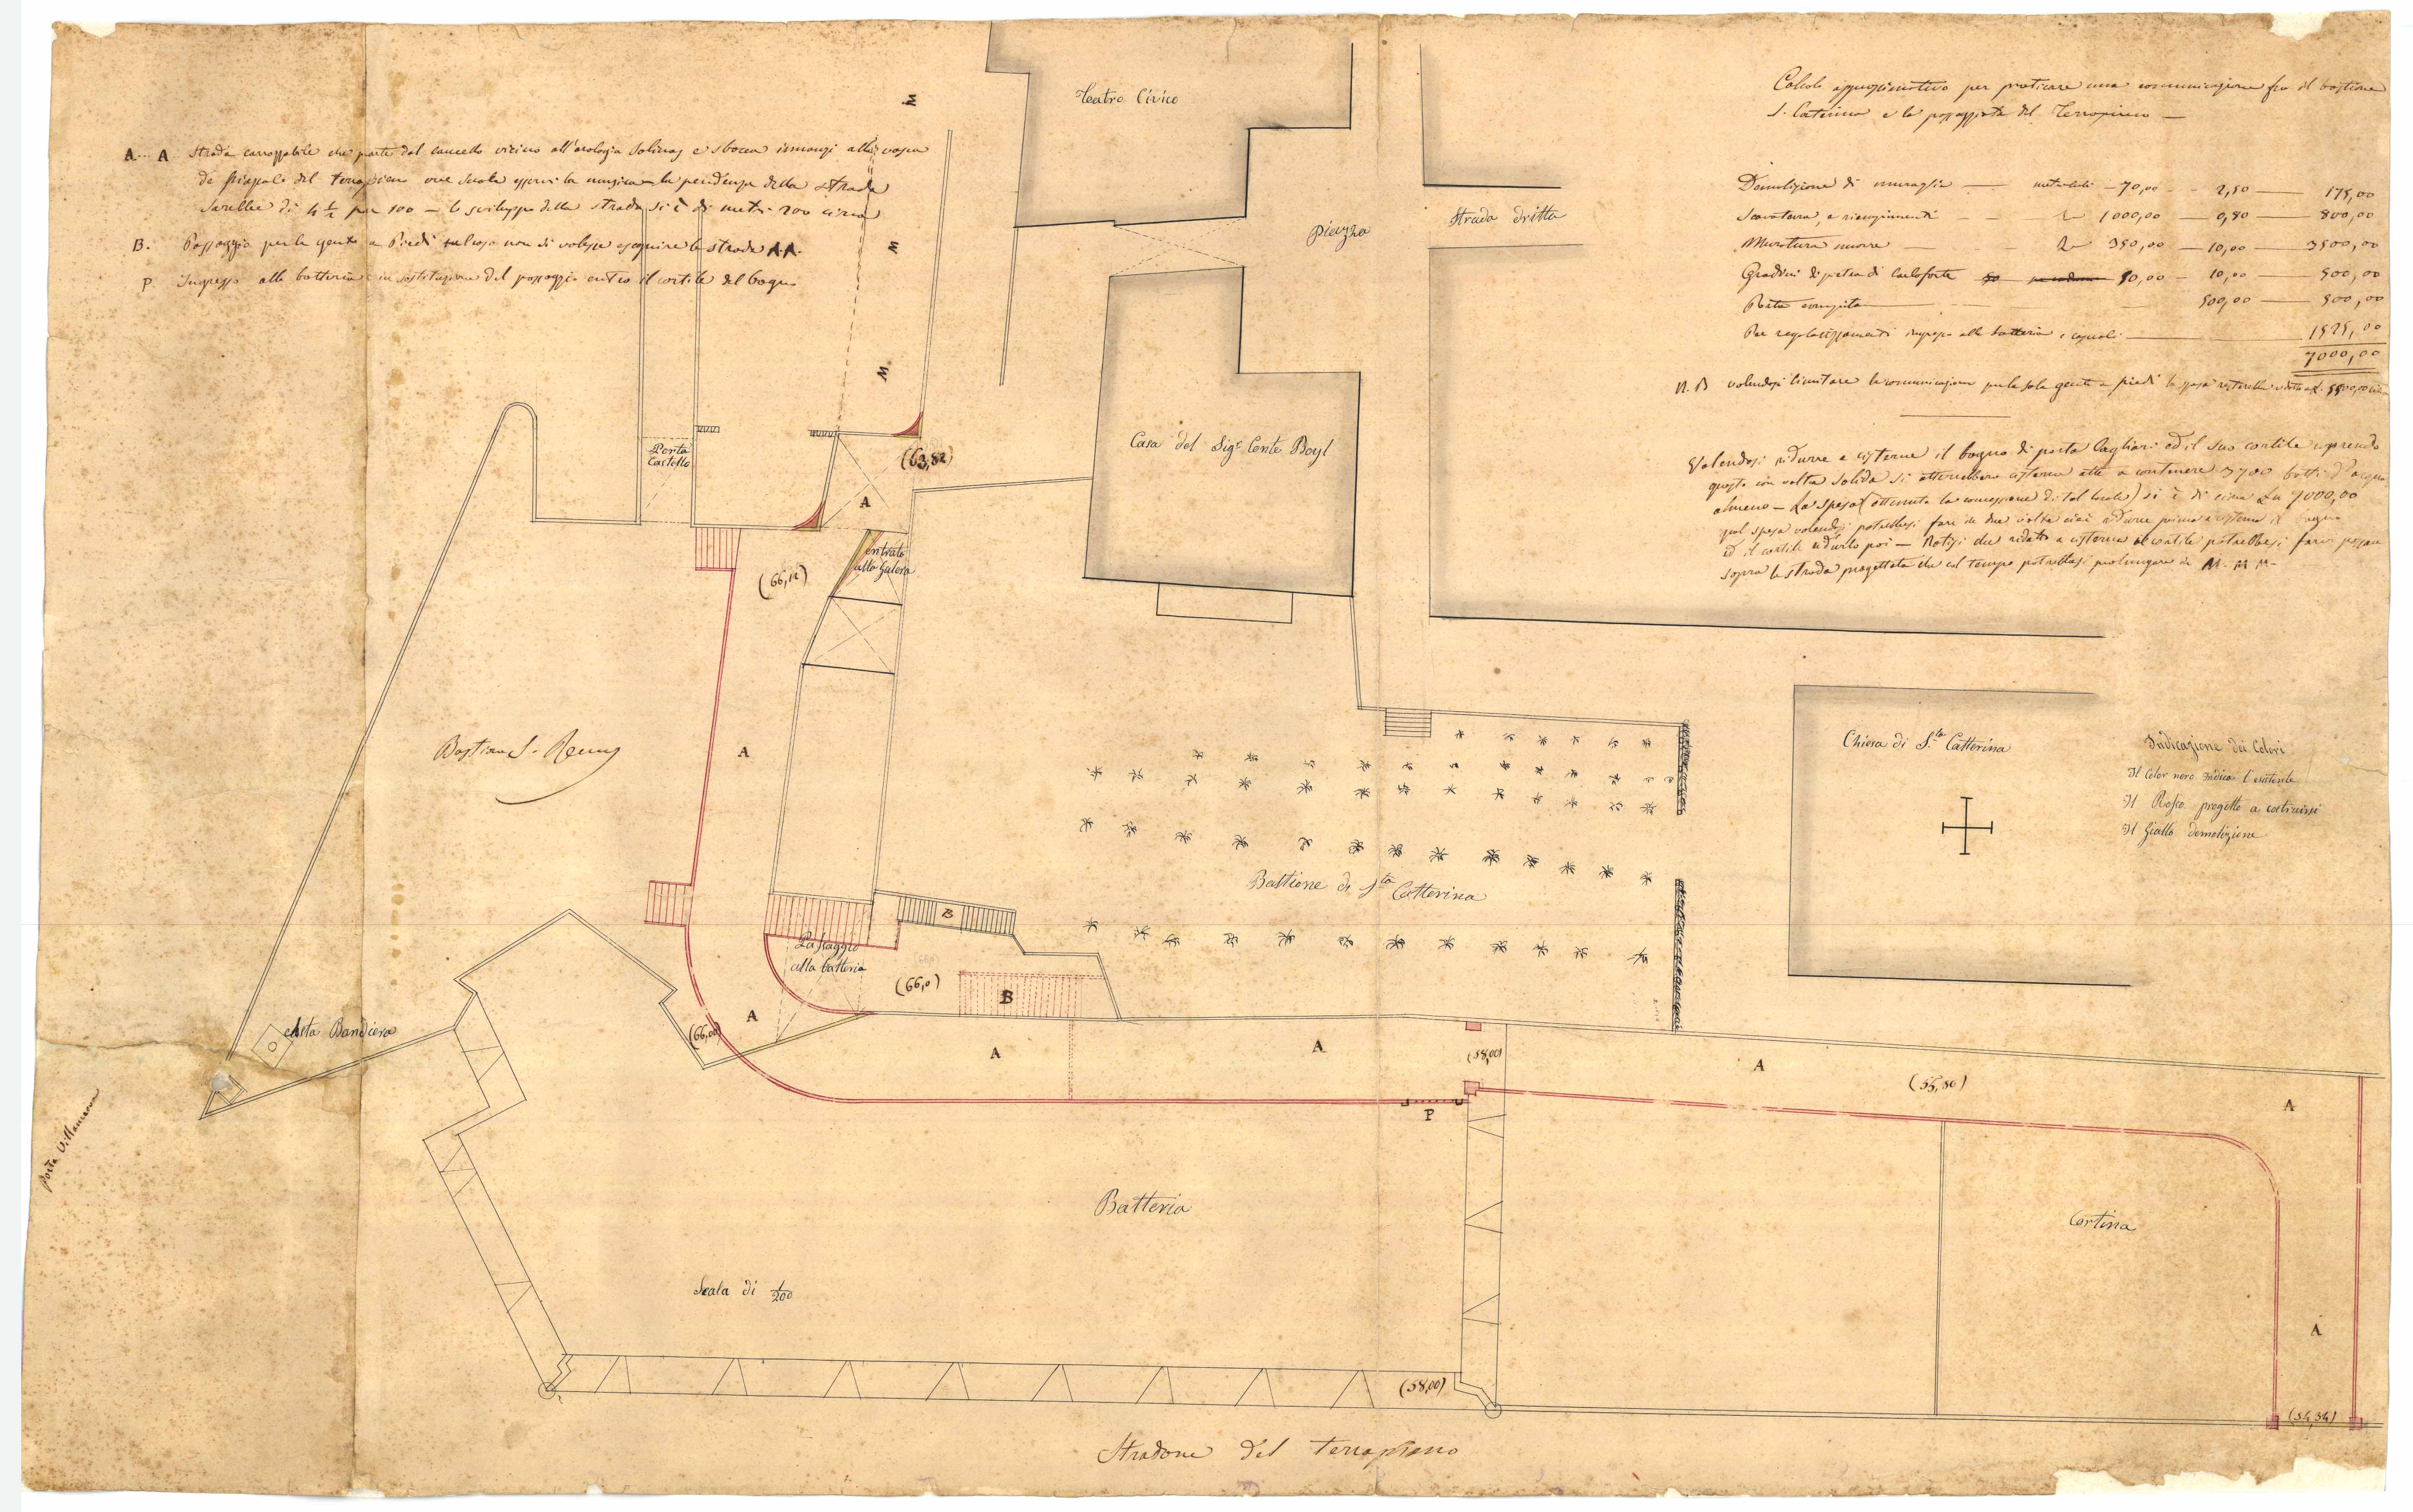 A. A. Strada carrozzabile che parte dal cancello vicino all'orologio Solinas e sbocca innanzi alla vasca
de piazzale del terrapieno ove suole essere la musica – la pendenza della strada
sarebbe di 4 1/2 per 100 – lo sviluppo della strada si è di metri 200 circa
B. Passaggio per la gente a Piedi non si volesse eseguire la strada A.A.
P. Ingresso alla batteria in sostituzione del passaggio entro il cortile del bagno
Calcolo approssimativo per praticare una comunicazione fra il bastione
S. Caterina e la passeggiata del Terrapieno —
Demolizione di muraglie — 70,00 – 2,50 — 175,00
Scavatura, e riempimenti — 1000,00 — 0,80 — 800,00
Muratura nuova — 350,00 — 10,00 — 3500,00
Gradini di pietra di Carloforte 50,00 – 10,00 — 500,00
Porta compita — 500,00 — 500,00
Per regolarizzamenti ingresso alla batteria — 1525,00
7000,00
N. B. volendosi limitare la comunicazione per la sola gente a piedi la spesa
Volendosi ridurre a cisterne il bagno di porta Cagliari ed il suo cortile coprendo
questo con volta solida si otterrebbero cisterne atte a contenere 3700 botti d'acqua
almeno – La spesa (ottenuta la concessione di tal locale) si è di circa Ln 7000,00
qual spesa volendosi potrebbesi fare in due volte cioè ridurre prima a cisterna il bagno
ed il cortile ridurlo poi — Notisi che ridotto a cisterna il cortile potrebbesi fare passare
sopra la strada progettata che col tempo potrebbesi prolungare in M. M. M.
Teatro Civico
M
M
M.
Piazza
Strada dritta
Porta
Castello
(63,82)
A
Casa del Sigr Conte Boyl
entrata
alla Galera
(66,12)
Bastione S. Remy
A
Chiesa di S.ta Catterina
Indicazione dei Colori
Il Color nero Indica l'esistente
Il Rosso progetto a costruirsi
Il Giallo demolizione
Bastione di S.ta Catterina
B
Passaggio
alla batteria
(66,0)
B
Asta Bandiera
(66,00)
A
A
A
(58,00)
A
(55,80)
A
P
Porta Villanova
Batteria
Cortina
Scala di 1/200
A
(58,00)
(54,34)
Stradone del terrapieno